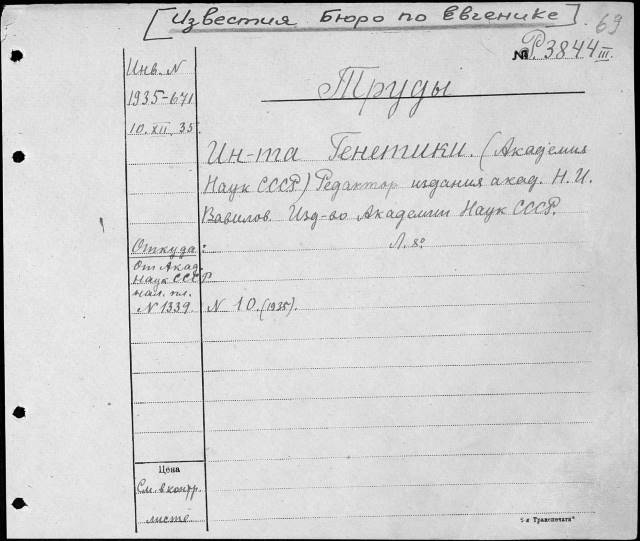 [Известия Бюро по Евгенике].
69
№ Р3844 III.
Инв. N
1935-671
10. XII. 35.
Труды
Ин-та Генетики. (Академия
Наук СССР) Редактор издания акад. Н. И.
Вавилов. Изд-во Академии Наук СССР.
Л. 8º
Откуда:
От Акад.
Наук СССР
нал. пл.
N 1339.
N 10. (1935).
Цена
См. в контр.
листе
Транспечати"